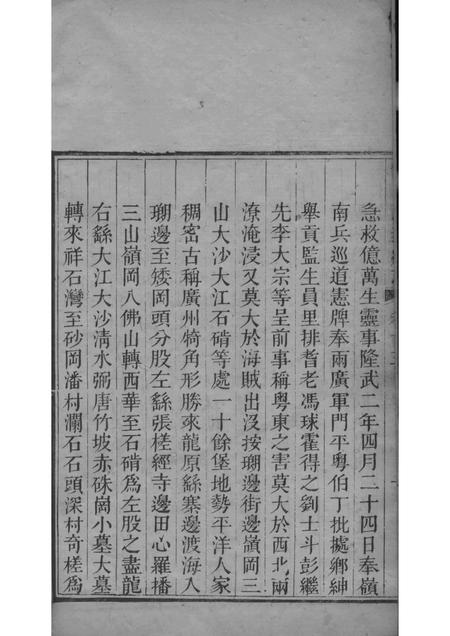 急救億萬生靈事隆武二年四月二十四日奉嶺
南兵巡道憲牌奉兩廣軍門平粵伯丁批據鄉紳
舉貢監生員里排耆老馮球霍得之劉士斗彭繼
先李大宗等呈前事稱粵東之害莫大於西北兩
潦淹浸又莫大於海賊出沒按瑚邊街邊嶺岡三
山大沙大江石碏等處一十餘堡地勢平洋人家
稠密古稱廣州犄角形勝來龍原繇寨邊渡海入
瑚邊至矮岡頭分股左繇張槎經寺邊田心羅播
三山嶺岡八佛山轉西華至石碏為左股之盡龍
右繇大江大沙清水弼唐竹坡赤硃崗小墓大墓
轉來祥石灣至砂岡潘村瀾石石頭深村奇槎為